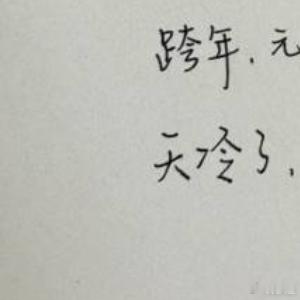 跨年,元
天冷了,